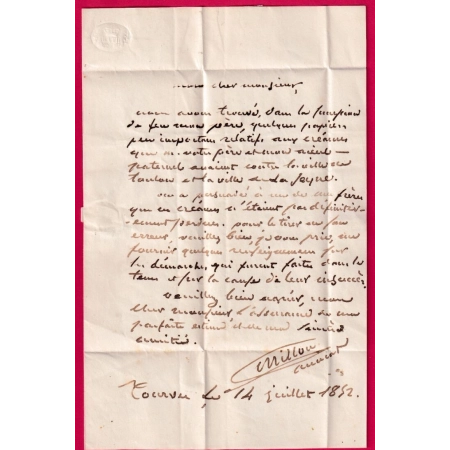 mon cher monsieur,
nous avons trouvé, dans la succession
de feu mon père, quelques papiers
peu importans relatifs aux créances
que m. votre père et mon aïeul
paternel avaient contre la ville de
toulon et la ville de La Seyne.
on a persuadé à un de mes frères
que ces créances n'étaient pas définitive-
ment perdues. pour le tirer de son
erreur, veuillez bien, je vous prie, me
fournir quelques renseignements sur
les démarches, qui furent faites dans le
tems et sur la cause de leur insuccès.
veuillez bien agréer, mon
cher monsieur l'assurance de ma
parfaite estime et de ma sincère
amitié.
avocat
Tourves le 14 juillet 1852.